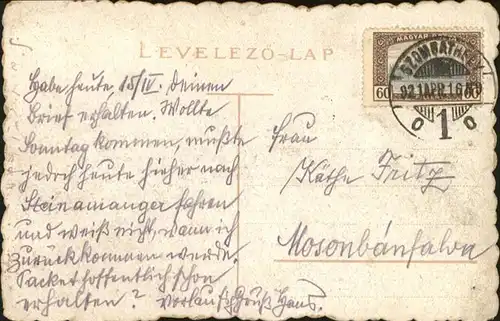 LEVELEZŐ-LAP
MAGYAR
60
SZOMBATHELY
921APR16
1
Habe heute 15/IV. Deinen
Brief erhalten. Wollte
Sonntag kommen, mußte
jedoch heute hieher nach
Steinamanger fahren
und weiß nicht, wann ich
zurückkommen werde.
Sacket hoffentlich schon
erhalten? Vorläufig Gruß Hans.
Frau
Käthe Fritz
Mosonbánfalva